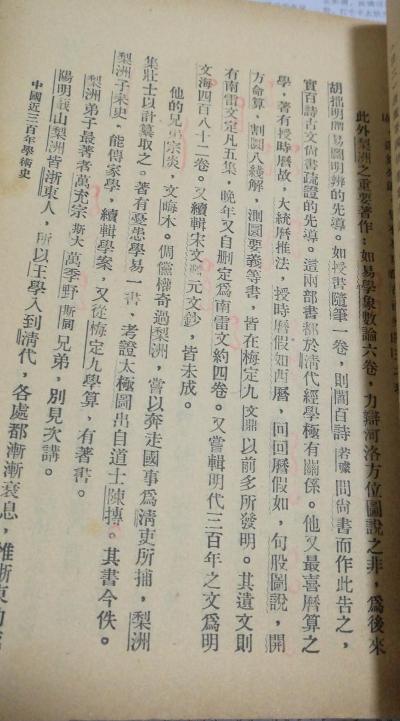 此外梨洲之重要著作，如易學象數論六卷，力辯河洛方位圖說之非，爲後來
胡朏明渭易圖明辨的先導。如授書隨筆一卷，則閻百詩若璩問尙書而作此告之，
實百詩古文尙書疏證的先導。這兩部書都於淸代經學極有關係。他又最喜曆算之
學，著有授時曆故，大統曆推法，授時曆假如西曆，回回曆假如，句股圖說，開
方命算，割圜八綫解，測圜要義等書，皆在梅定九文鼎以前多所發明。其遺文則
有南雷文定凡五集，晚年又自刪定爲南雷文約四卷。又嘗輯明代三百年之文爲明
文海四百八十二卷。又續輯宋文鑑元文鈔，皆未成。
他的兄弟宗炎，文晦木。倜儻權奇過梨洲，嘗以奔走國事爲淸吏所捕，梨洲
集壯士以計篡取之。著有憂患學易一書，考證太極圖出自道士陳摶。其書今佚。
梨洲子耒史，能傳家學，續輯學案，又從梅定九學算，有著書。
梨洲弟子最著者萬充宗斯大萬季野斯同兄弟，別見次講。
陽明蕺山梨洲皆浙東人，所以王學入到淸代，各處都漸漸衰息，惟浙東的
中國近三百年學術史